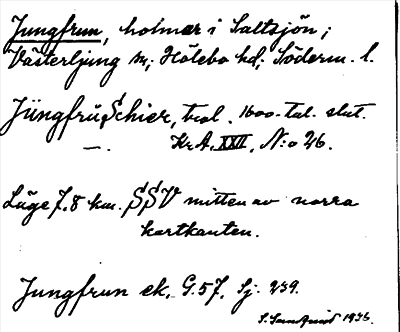 Jungfrun, holmar i Saltsjön;
Västerljung sn; Hölebo hd; Söderm. l.
Jüngfrü Schier, trol. 1600-tal. slut.
—. KrA. XXII, N:o 26.
Läge 7,8 km. SSV mitten av norra
kartkanten.
Jungfrun ek. G.57, Sj. 239.
1936.